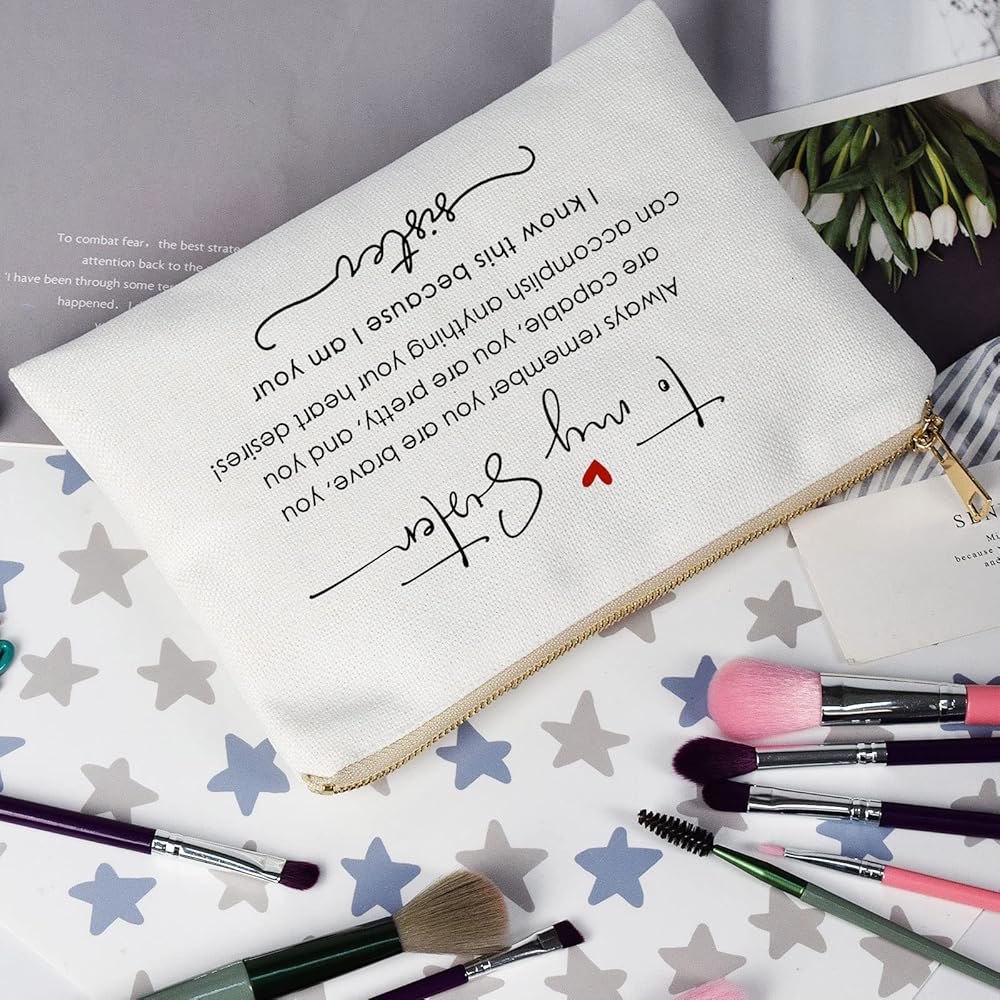 To my
Sister
Always remember you are brave, you
are capable, you are pretty, and you
can accomplish anything your heart desires!
I know this because I am your
sister
To combat fear, the best strate
attention back to the
'I have been through some ter
happened.
SEN
Mi
because
and